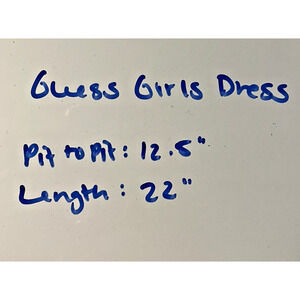 Guess Girls Dress
Pit to Pit: 12.5"
Length: 22"